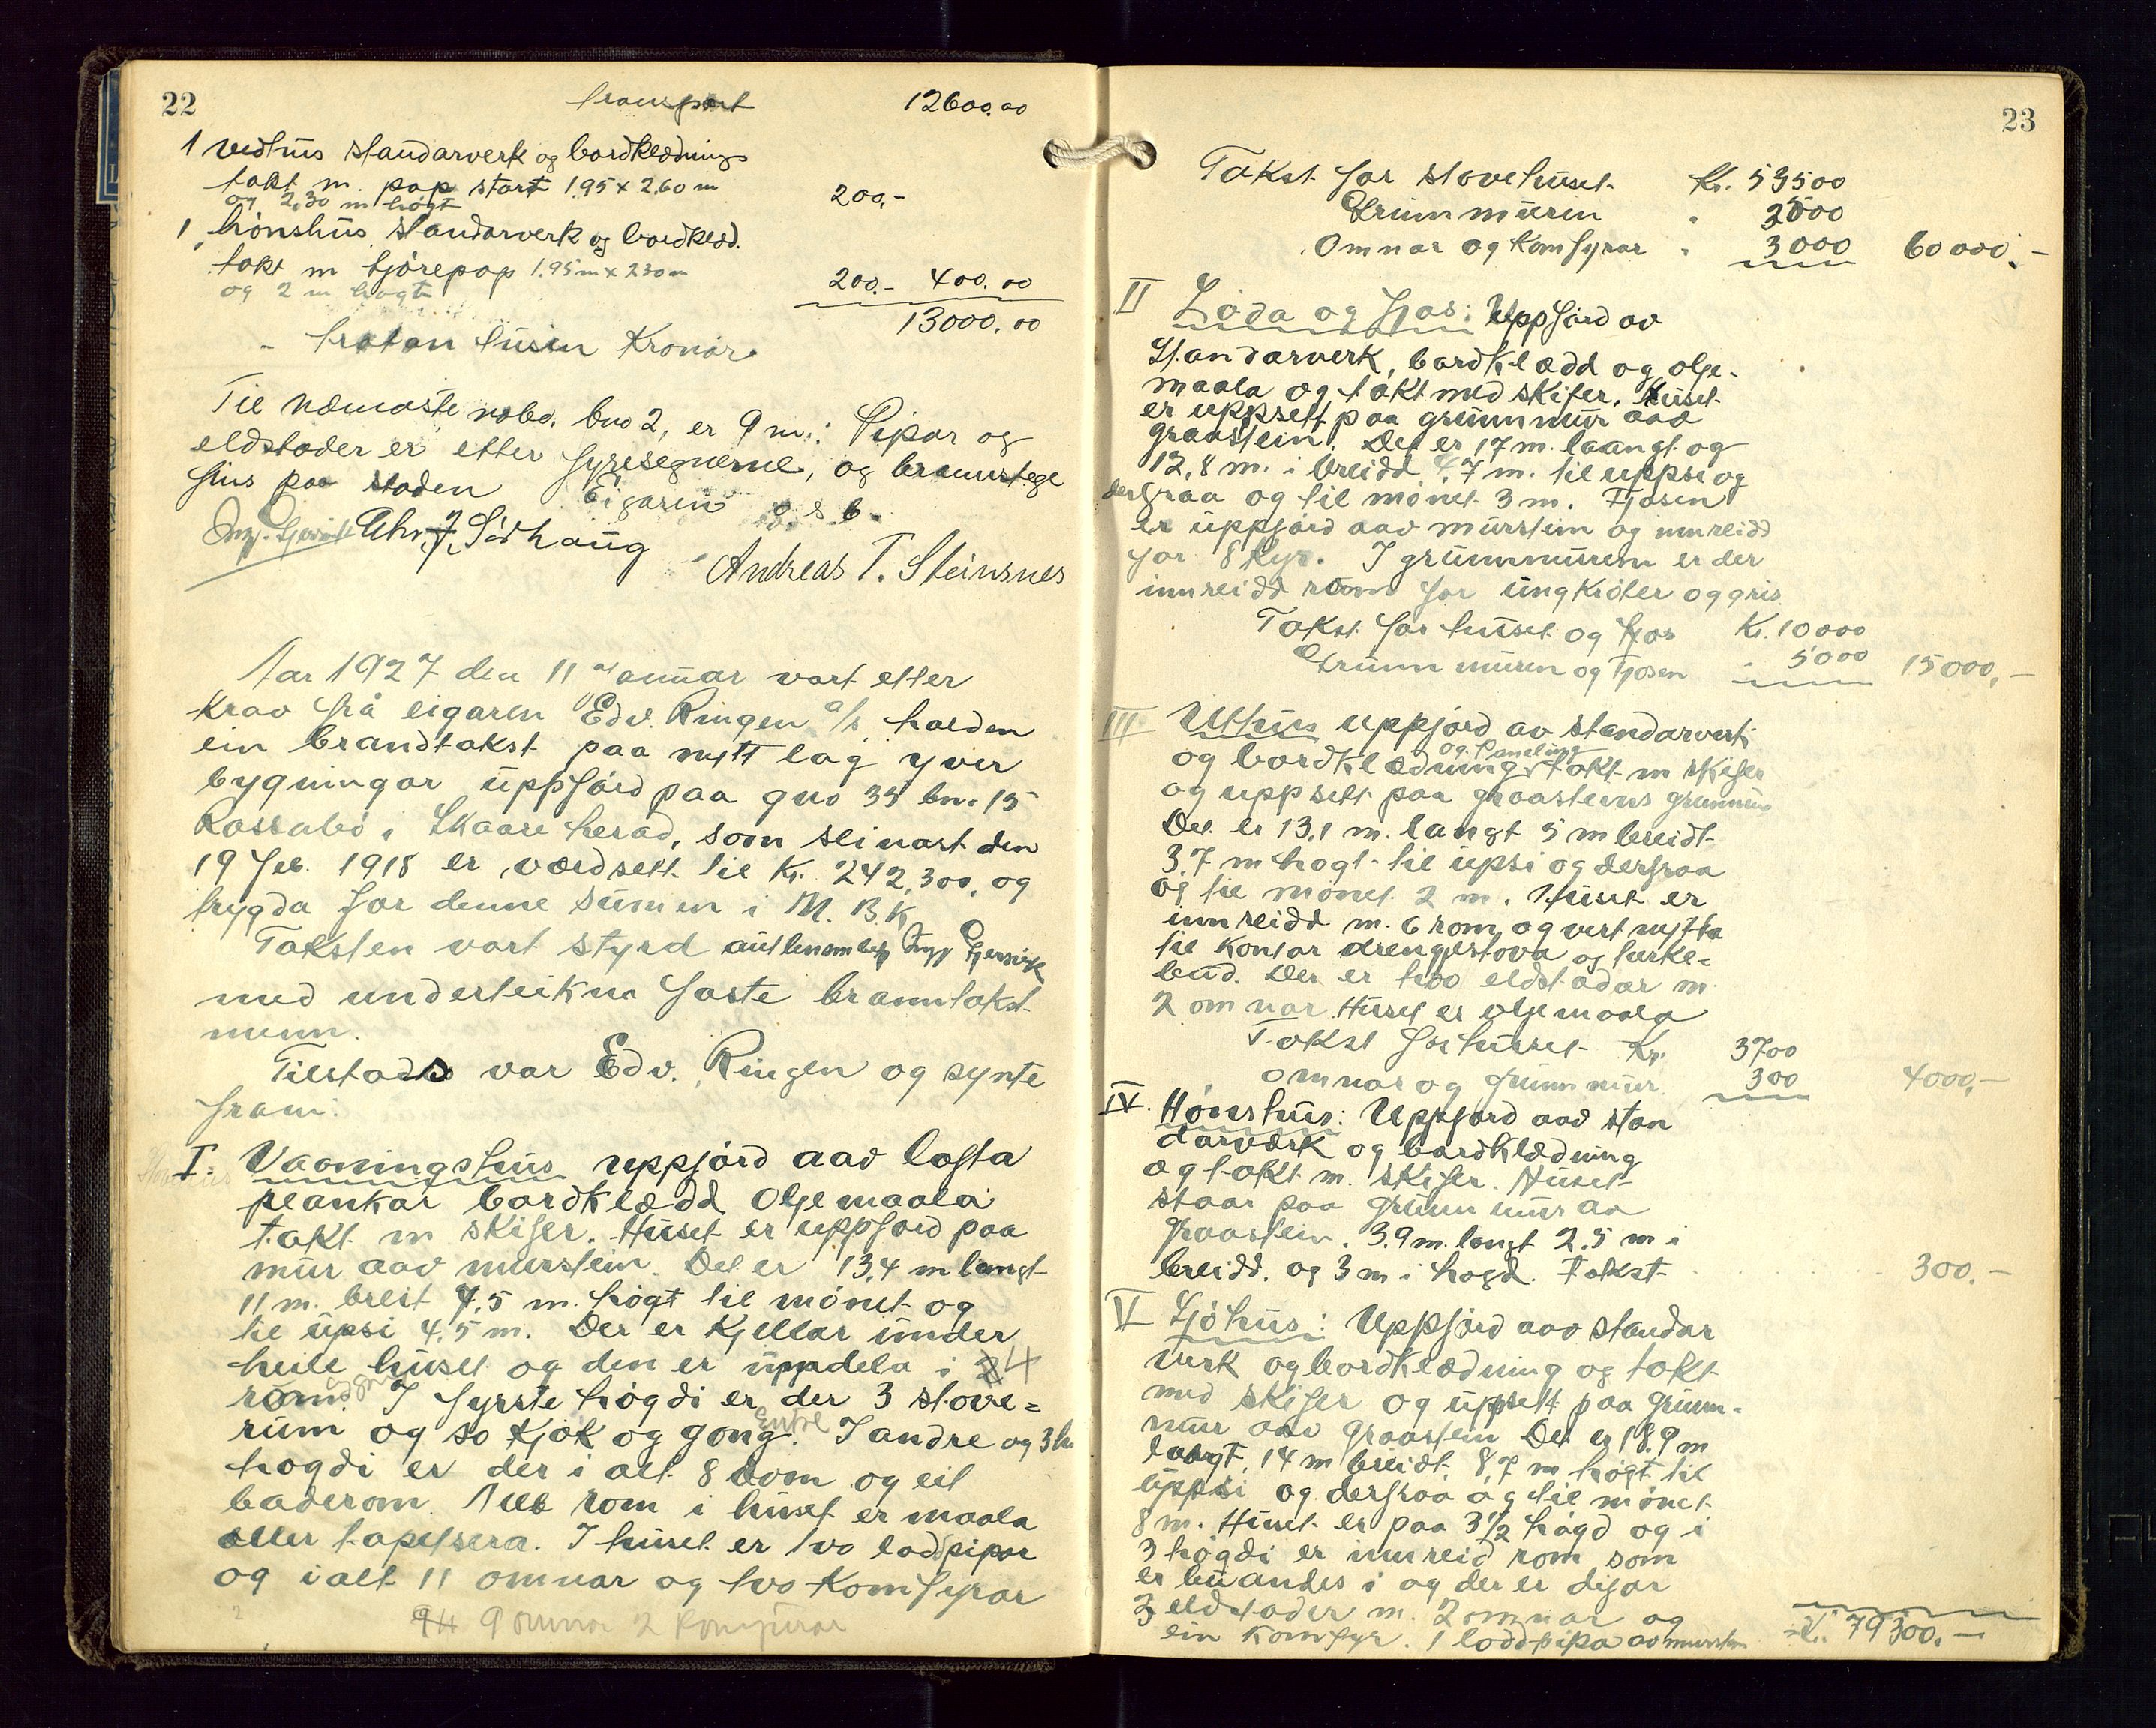 22
transport 12600.00
1 vedhus standarverk og bordklædnings
takt m. pap start 1.95 x 2.60 m
og 2,30 m høgt 200,-
1 hønshus standarverk og bordklæd.
takt m tjørepap 1.95 m x 2.30 m
og 2 m høgt 200.- 400.00
13000.00
- tratan tusin Kronor
Til næmaste nabo, bno 2, er 9 m.: Pipor og
eldstader er etter fyresegnerne, og branstege
fins paa staden Eigaren o s b.
Chr. J. Sørhaug
Andreas T. Steinsnes
Aar 1927 den 11 Januar vart etter
krav frå eigaren Edv. Ringen a/s halden
ein brandtakst paa nytt lag yver
bygningar uppførd paa gno 35 bn. 15
Rossabø i Skaare herad, som seinast den
19 feb. 1918 er værdsett til Kr. 242,300, og
trygda for denne sumen i N. B. K
Taksten vart styrd av lensm betj. Ingv Gjersvik
med underteikna faste branntakst-
menn.
Tilstades var Edv. Ringen og synte
fram:
I: Vaaningshus uppførd aav lafta
plankar bordklædd Oljemaala
takt m skifer. Huset er uppførd paa
mur aav murstein. Det er 13,4 m langt
11 m. breit 7,5 m. høgt til mønet og
til upsi 4,5 m. Der er Kjellar under
heile huset og den er uppdela i 4
rom. I fyrste høgdi er der 3 stove=
rum og so Kjøk og gong. Entre I andre og 3die
høgdi er der i alt 8 rom og eit
baderom. Alle rom i huset er maala
eller tapetsera. I huset er tvo loddpipor
og i alt 11 omnar og tvo Komfyrar
9 omnar 2 Komfyrar
23
Takst for stovehuset Kr. 55500
Grunnmuren " 2000
Omnar og Komfyrar " 3000 60000.-
II Løda og fjøs: Uppførd av
Standarverk, bordklædd og olje-
maala og takt med skifer. Huset
er uppsett paa grunnmur aav
graastein. Det er 17 m. laangt og
12,8 m. i breidd 4,7 m. til uppsi og
derfraa og til mønet 3 m. Fjøsen
er uppførd aav murstein og innreidd
for 8 Kyr. I grunnmuren er der
innreidd rom for ungkrøter og gris
Takst for huset og fjøs Kr. 10000
Grunnmuren og Fjøsen " 5000 15000,-
III Uthus uppførd av standarverk
og Paneling
og bordklædning takt m skifer
og uppsett paa graasteins grunnmur
Det er 13,1 m. langt 5 m breidt
3,7 m høgt til upsi og derfraa
og til mønet 2 m. Huset er
innreidd m. 6 rom og vert nytta
til Kontor drengestova og turke=
bud. Der er tvo eldstadar m.
2 omnar. Huset er oljemaala
Takst for husset Kr. 3700
omnar og grunnmur 300 4000,-
IV. Hønshus: Uppførd aav stan
darværk og bordklædning
og takt m. skifer. Huset
staar paa Grunnmur av
Graastein. 3.9 m. langt 2.5 m i
breidd. og 3 m i høgd. Takst 300.-
V Sjøhus: Uppførd aav standar
verk og bordklædning og takt
med skifer og uppsett paa Grunn-
mur aav Graastein Det er 18,9 m
langt, 14 m breidt, 8,7 m høgt til
uppsi og derfraa og til mønet
8 m. Huset er paa 3 1/2 høgd og i
3 høgdi er innreid rom som
er buandes i og der er difor
3 eldstader m. 2 omnar og
ein Komfyr. 1 loddpipa av murstein Kr. 79300.-